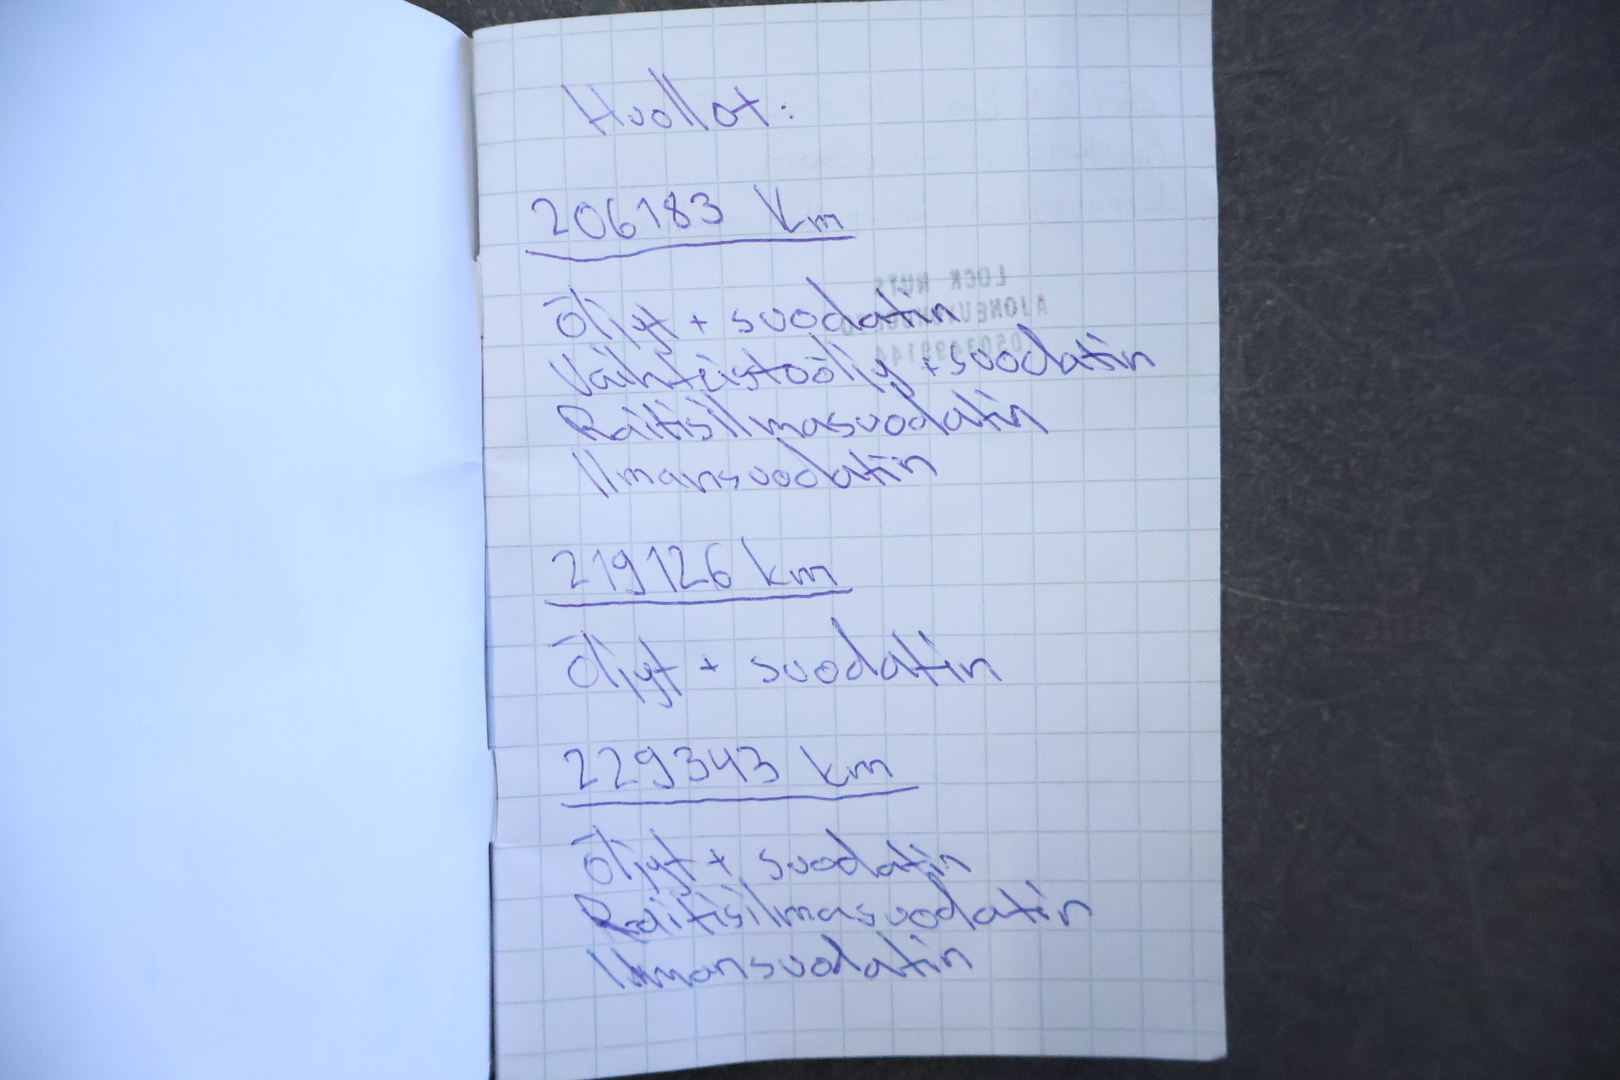 Huollot:
206183 km
Öljyt + suodatin
Vaihteistoöljy + suodatin
Raitisilmasuodatin
Ilmansuodatin
219126 km
Öljyt + suodatin
229343 km
Öljyt + suodatin
Raitisilmasuodatin
Ilmansuodatin
LOCK NUTS